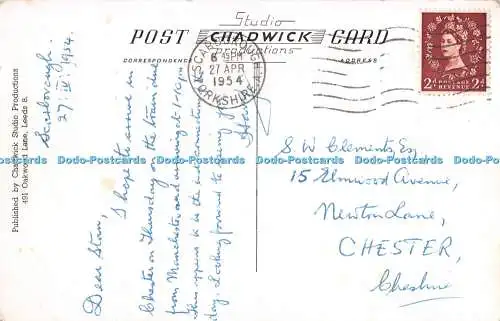 Studio
POST CHADWICK CARD
Productions
CORRESPONDENCE
ADDRESS
SCARBOROUGH
6 PM
27 APR
1954
YORKSHIRE
2d POSTAGE 2d
REVENUE
Scarborough.
27. IV. 1954.
Dear Stan,
I hope to arrive in
Chester on Thursday on the train due
from Manchester and arriving at
This appears to be the only connection
day. Looking forward to seeing you
S W Clements, Esq.,
15 Elmwood Avenue,
Newton Lane,
CHESTER,
Cheshire
Published by Chadwick Studio Productions
491 Oakwood Lane, Leeds 8.
Dodo-Postcards Dodo-Postcards Dodo-Postcards Dodo-Postcards Dodo-Postcards Dodo-Postcards